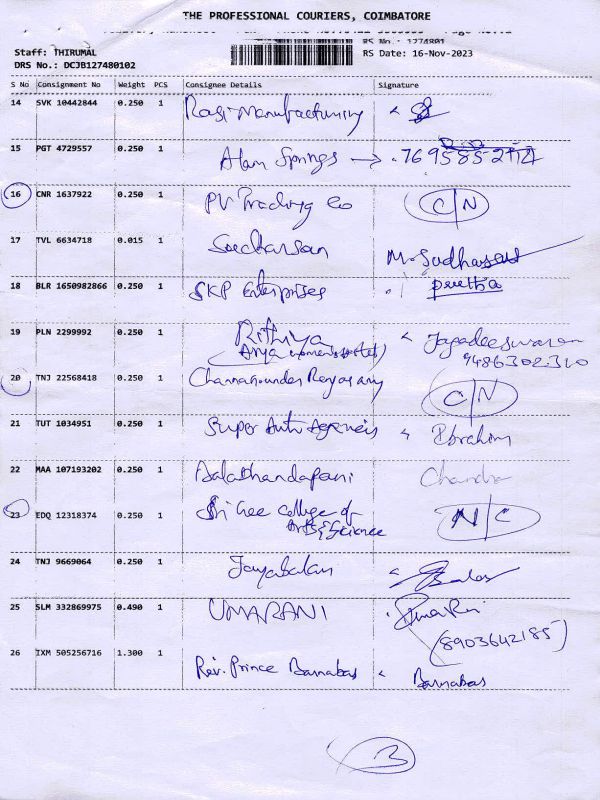 THE PROFESSIONAL COURIERS, COIMBATORE
RS No.: 1274801
Staff: THIRUMAL
RS Date: 16-Nov-2023
DRS No.: DCJB127480102
S No Consignment No Weight PCS Consignee Details Signature
14 SVK 10442844 0.250 1 Ragi Manufacturing
15 PGT 4729557 0.250 1 Alam Springs
16 CNR 1637922 0.250 1 PV Trading Co C/N
17 TVL 6634718 0.015 1 Sudharsan M. Sudharsan
18 BLR 1650982866 0.250 1 SKP Enterprises preetha
19 PLN 2299992 0.250 1 Rithiya Jagadeeswaran
(Arya womens hostel) 9486302310
20 TNJ 22568418 0.250 1 C/N
21 TUT 1034951 0.250 1 Super Auto Agencies Ibrahim
22 MAA 107193202 0.250 1 Balathandapani Chandra
23 EDQ 12318374 0.250 1 Sri Gee College of N/C
Arts & Science
24 TNJ 9669064 0.250 1 Jayabalan
25 SLM 332869975 0.490 1 UMARANI
(8903642185)
26 IXM 505256716 1.300 1 Rev. Prince Barnabas Barnabas
3